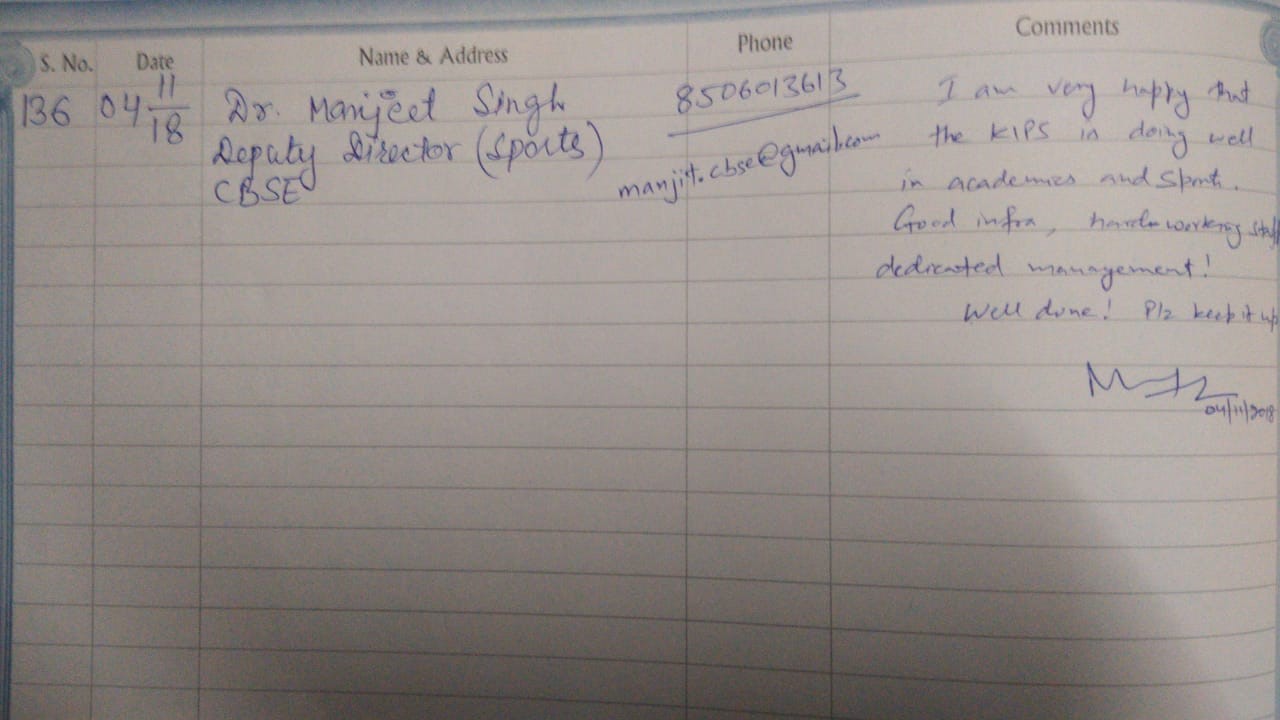 S. No. Date Name & Address Phone Comments
136 04 11/18 Dr. Manjeet Singh 8506013613 I am very happy that
Deputy Director (Sports) manjit.cbse@gmail.com the KIPS in doing well
CBSE in academics and Sports.
Good infra, hard-working staff
dedicated management!
Well done! Plz keep it up
04/11/2018